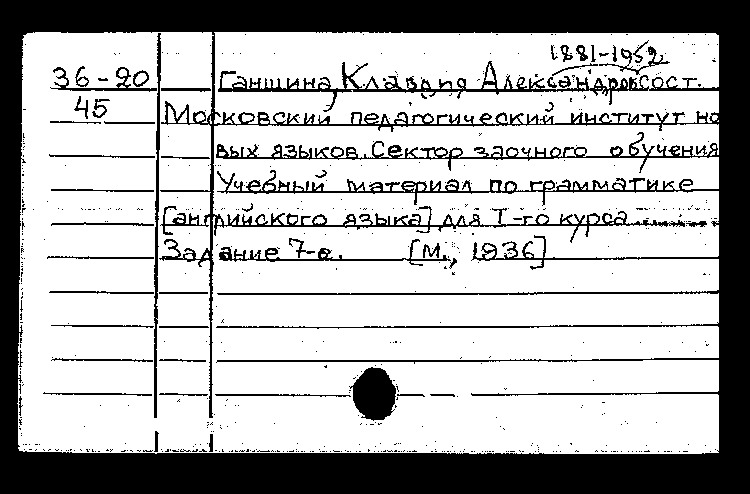 1881-1952
36-20 Ганшина, Клавдия Александров сост.
45 Московский педагогический институт но
вых языков. Сектор заочного обучения
Учебный материал по грамматике
[английского языка] для I-го курса
Задание 7-е. [М., 1936]